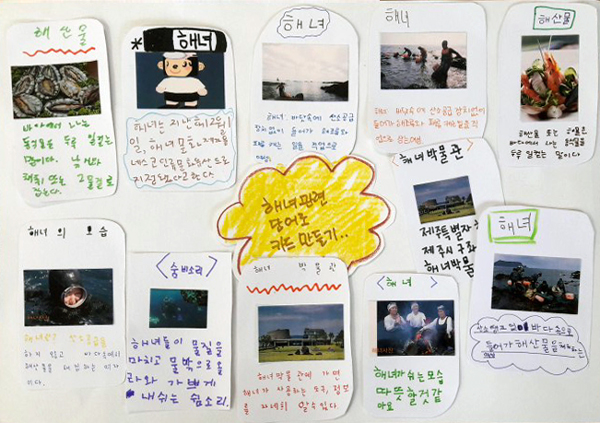 해산물
바다에서 나는
동식물을 두루 일컫는
말이다.
잡는다.
*해녀
해녀는 지난해(12월1
일, 해녀 문화
유네스코 인류무형문화유산으로
지정됐다고한다.
해녀
해녀 바닷속에 산소공급
장치없이 들어가 해조류와
해녀
해녀 바닷속에 산소공급 장치없이
들어가 해조류와
해산물
해산물 또는
바다에서 나는 동식물을
두루 일컫는 말이다.
해녀관련
단어
카드 만들기..
<해녀박물관
제주특별자
제주시 구좌
해녀박물
해녀의 모습
하지 않고 바다속에서
<숨비소리>
해녀들이 물질을
마치고 물 밖으로 올
라와 가쁘게
내쉬는 숨소리.
해녀 박물관
해녀박물관에 가면
해녀가 사용하는 도구, 정보
를 자세히 알수있다.
<해녀>
해녀가 쉬는모습
따뜻할것같
아요
해녀
산소탱크 없이 바다속으로
들어가 해산물을